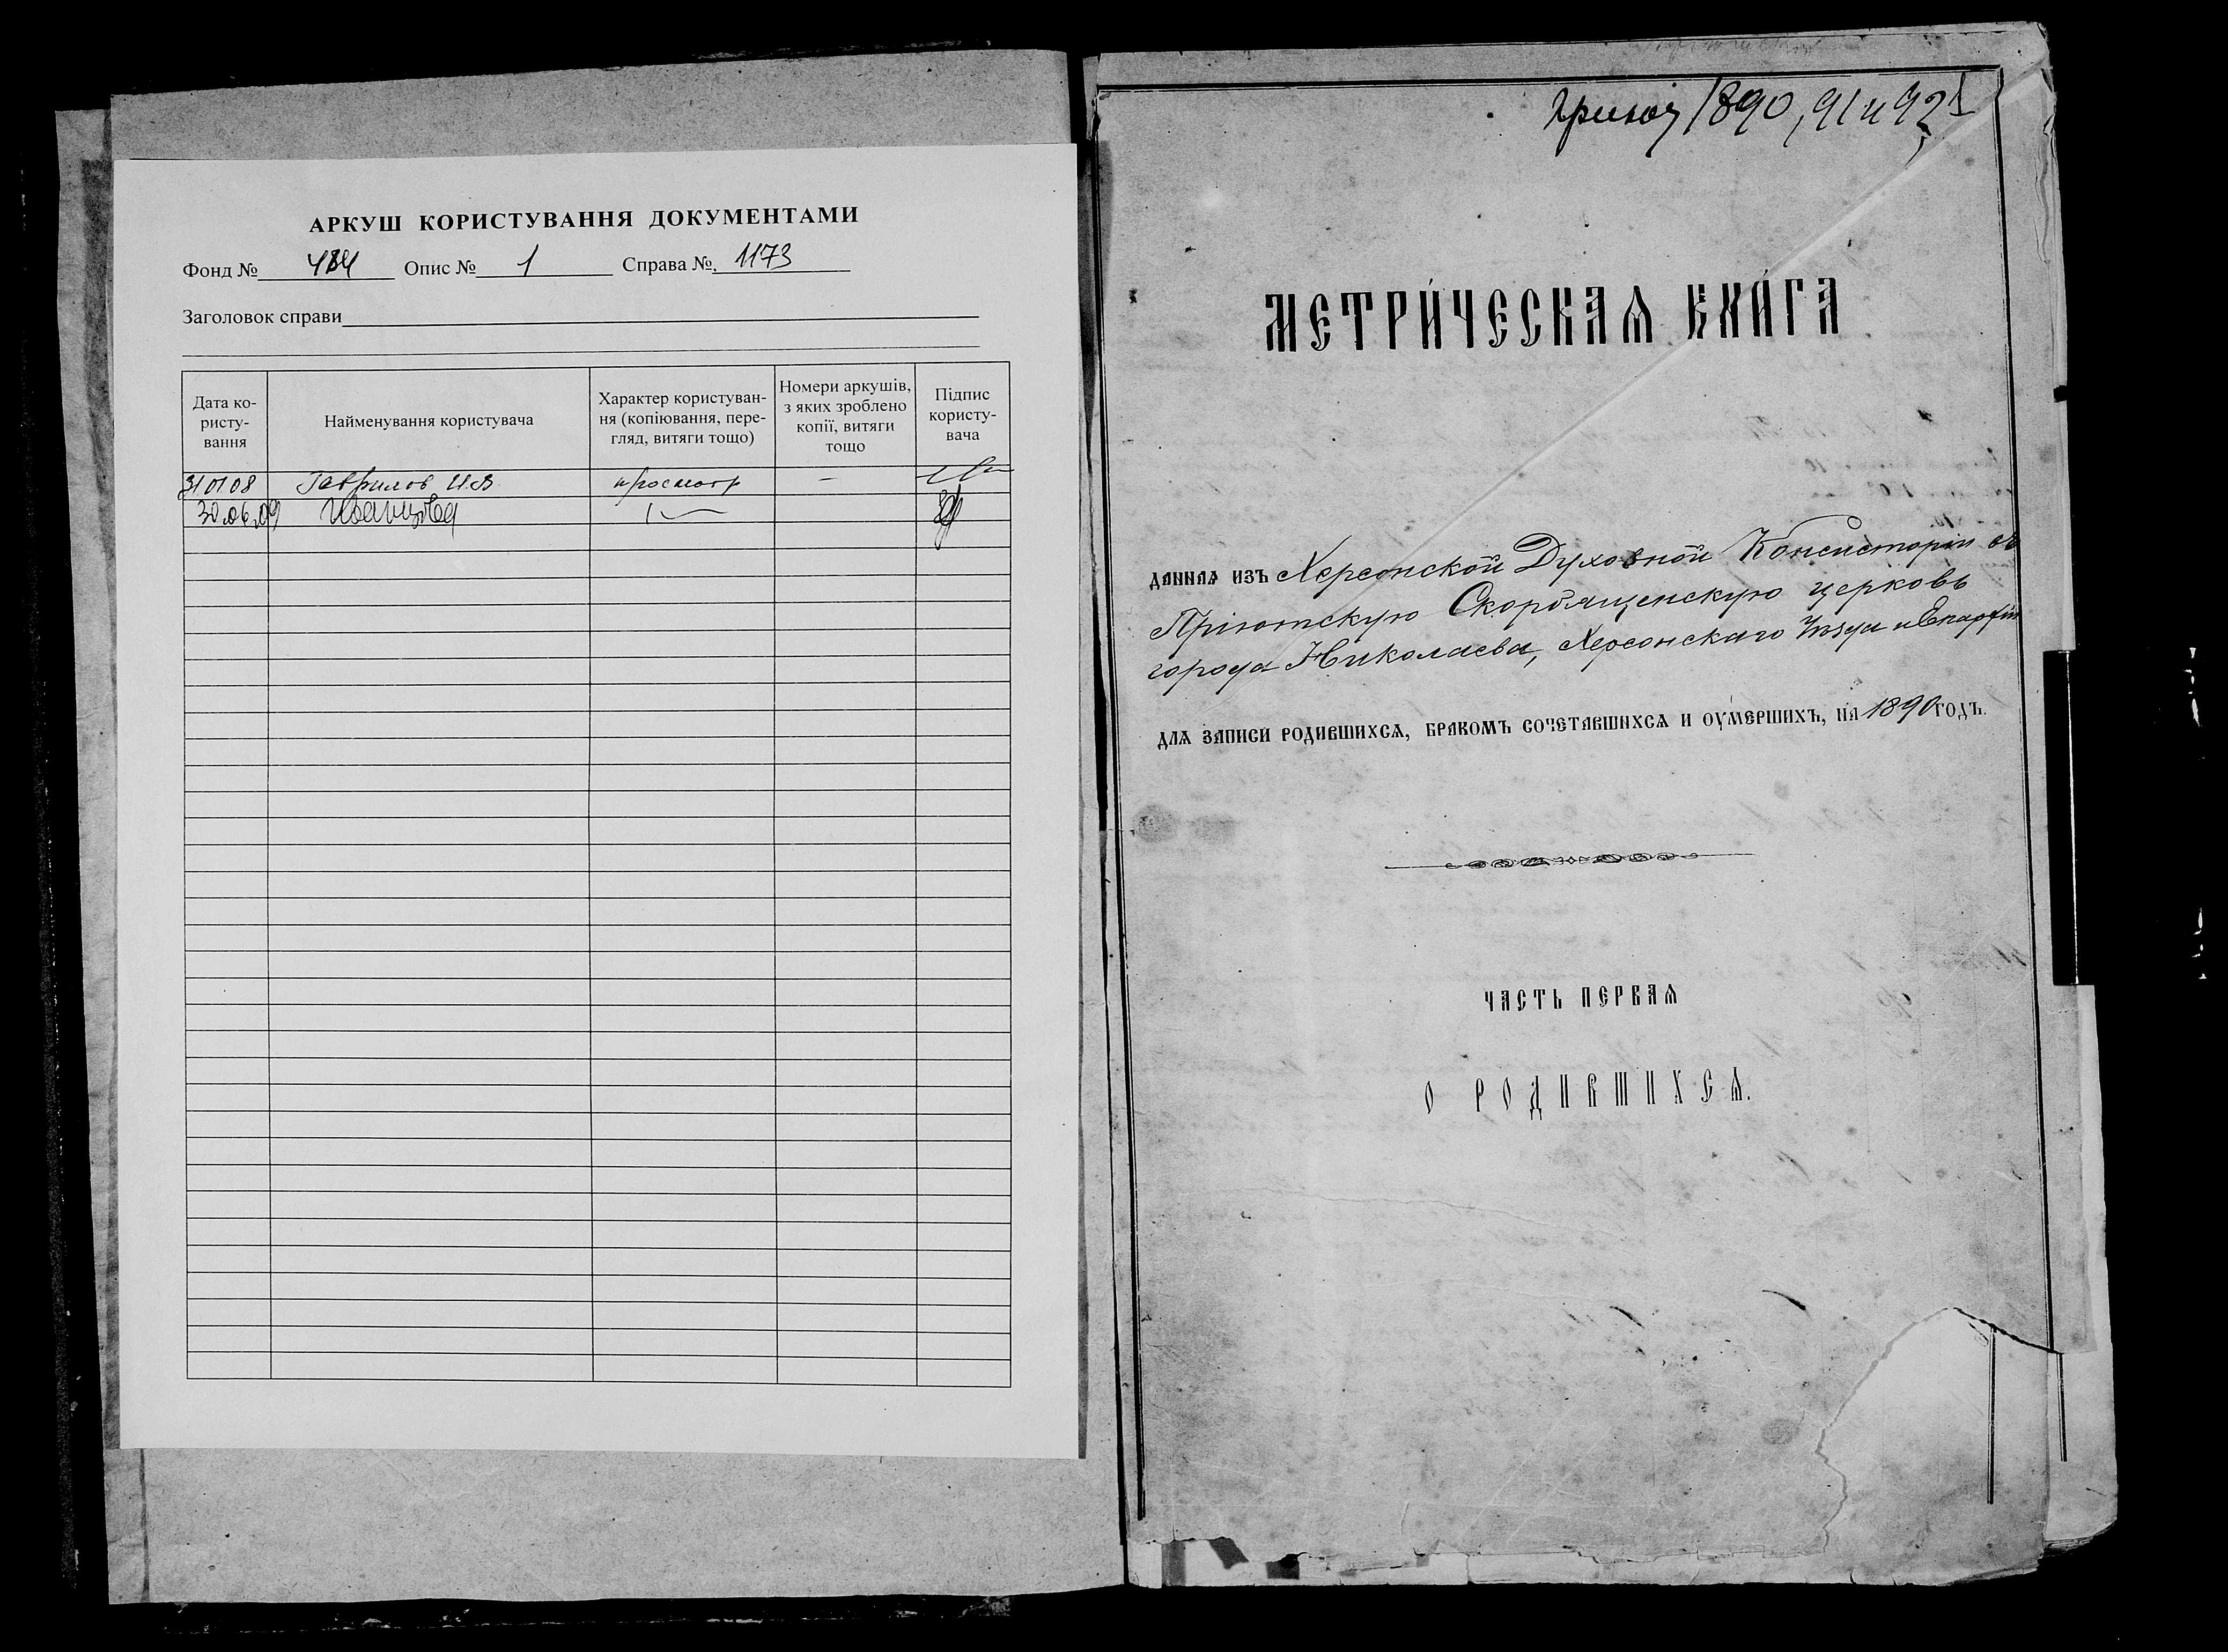 АРКУШ КОРИСТУВАННЯ ДОКУМЕНТАМИ
Фонд № 484 Опис № 1 Справа №. 1173
Заголовок справи
Дата ко-
ристу-
вання
Найменування користувача
Характер користуван-
ня (копіювання, пере-
гляд, витяги тощо)
Номери аркушів,
з яких зроблено
копії, витяги
тощо
Підпис
користу-
вача
31 01 08 Гаврилов И.В. просмотр –
30.06.09
1890, 91 и 92
МЕТРИ́ЧЕСКАѦ КНИ́ГА
ДАННАѦ ИЗЪ Херсонской Духовной Консисторіи въ
Пріютскую Скорбященскую церковь
города Николаева, Херсонскаго Уѣзда и Епархіи
ДЛѦ ЗАПИСИ РОДИВШИХСѦ, БРАКОМЪ СОЧЕТАВШИХСѦ И ОУМЕРШИХЪ, НА 1890 ГОДЪ.
ЧАСТЬ ПЕРВАѦ
О РОДИВШИХСѦ.